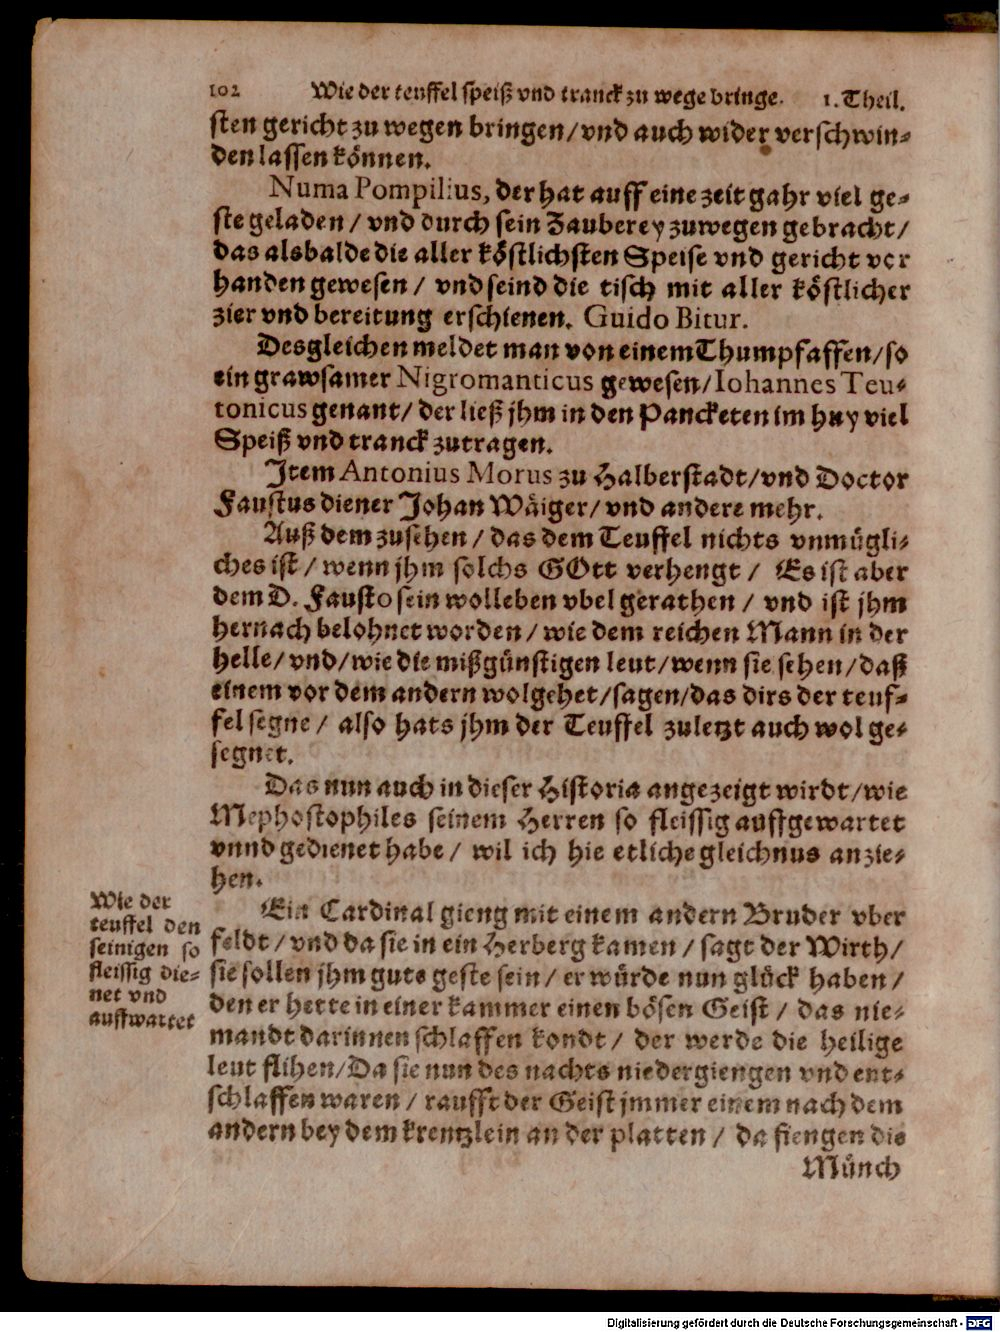 102 Wie der teuffel speiß vnd tranck zu wege bringe. 1. Theil.
sten gericht zu wegen bringen/vnd auch wider verschwin-
den lassen können.
Numa Pompilius, der hat auff eine zeit gahr viel ge-
ste geladen / vnd durch sein Zauberey zuwegen gebracht/
das alsbalde die aller köstlichsten Speise vnd gericht vor
handen gewesen / vnd seind die tisch mit aller köstlicher
zier vnd bereitung erschienen. Guido Bitur.
Desgleichen meldet man von einem Thumpfaffen/so
ein grawsamer Nigromanticus gewesen/Iohannes Teu-
tonicus genant/ der ließ jhm in den Pancketen im huy viel
Speiß vnd tranck zutragen.
Jtem Antonius Morus zu Halberstadt/vnd Doctor
Faustus diener Johan Wäiger/vnd andere mehr.
Auß dem zusehen / das dem Teuffel nichts vnmügli-
ches ist / wenn jhm solchs GOtt verhengt / Es ist aber
dem D. Fausto sein wolleben vbel gerathen / vnd ist jhm
hernach belohnet worden / wie dem reichen Mann in der
helle/ vnd/wie die mißgünstigen leut/wenn sie sehen/daß
einem vor dem andern wolgehet/sagen/das dirs der teuf-
fel segne / also hats jhm der Teuffel zuletzt auch wol ge-
segnet.
Das nun auch in dieser Historia angezeigt wirdt/wie
Mephostophiles seinem Herren so fleissig auffgewartet
vnnd gedienet habe / wil ich hie etliche gleichnus anzie-
hen.
Wie der
teuffel den
seinigen so
fleissig die-
net vnd
auffwartet
Ein Cardinal gieng mit einem andern Bruder vber
feldt / vnd da sie in ein Herberg kamen / sagt der Wirth/
sie sollen jhm gute geste sein / er würde nun glück haben /
den er hette in einer kammer einen bösen Geist / das nie-
mandt darinnen schlaffen kondt / der werde die heilige
leut flihen/Da sie nun des nachts niedergiengen vnd ent-
schlaffen waren / raufft der Geist jmmer einem nach dem
andern bey dem krentzlein an der platten / da fiengen die
Münch
Digitalisierung gefördert durch die Deutsche Forschungsgemeinschaft - DFG